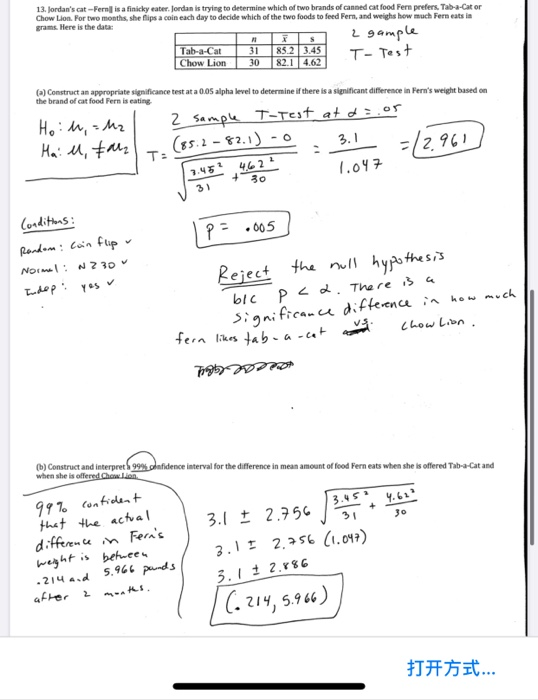 13. Jordan's cat—Fern is a finicky eater. Jordan is trying to determine which of two brands of canned cat food Fern prefers, Tab-a-Cat or
Chow Lion. For two months, she flips a coin each day to decide which of the two foods to feed Fern, and weighs how much Fern eats in
grams. Here is the data:
2 sample
T-Test
n x̄ s
Tab-a-Cat 31 85.2 3.45
Chow Lion 30 82.1 4.62
(a) Construct an appropriate significance test at a 0.05 alpha level to determine if there is a significant difference in Fern's weight based on
the brand of cat food Fern is eating.
2 sample T-Test at α = .05
H₀: μ₁ = μ₂
Ha: μ₁ ≠ μ₂
T = (85.2 - 82.1) - 0 / √(3.45²/31 + 4.62²/30) = 3.1/1.047 = 2.961
Conditions:
Random: Coin flip ✓
Normal: N≥30 ✓
Indep: yes ✓
P = .005
Reject the null hypothesis
b/c P < α. There is a
significance difference in how much
fern likes tab-a-cat vs. chow Lion.
(b) Construct and interpret a 99% confidence interval for the difference in mean amount of food Fern eats when she is offered Tab-a-Cat and
when she is offered Chow Lion.
99% confident
that the actual
difference in Fern's
weight is between
.214 and 5.966 pounds
after 2 months.
3.1 ± 2.756 √(3.45²/31 + 4.62²/30)
3.1 ± 2.756 (1.047)
3.1 ± 2.886
(.214, 5.966)
打开方式...